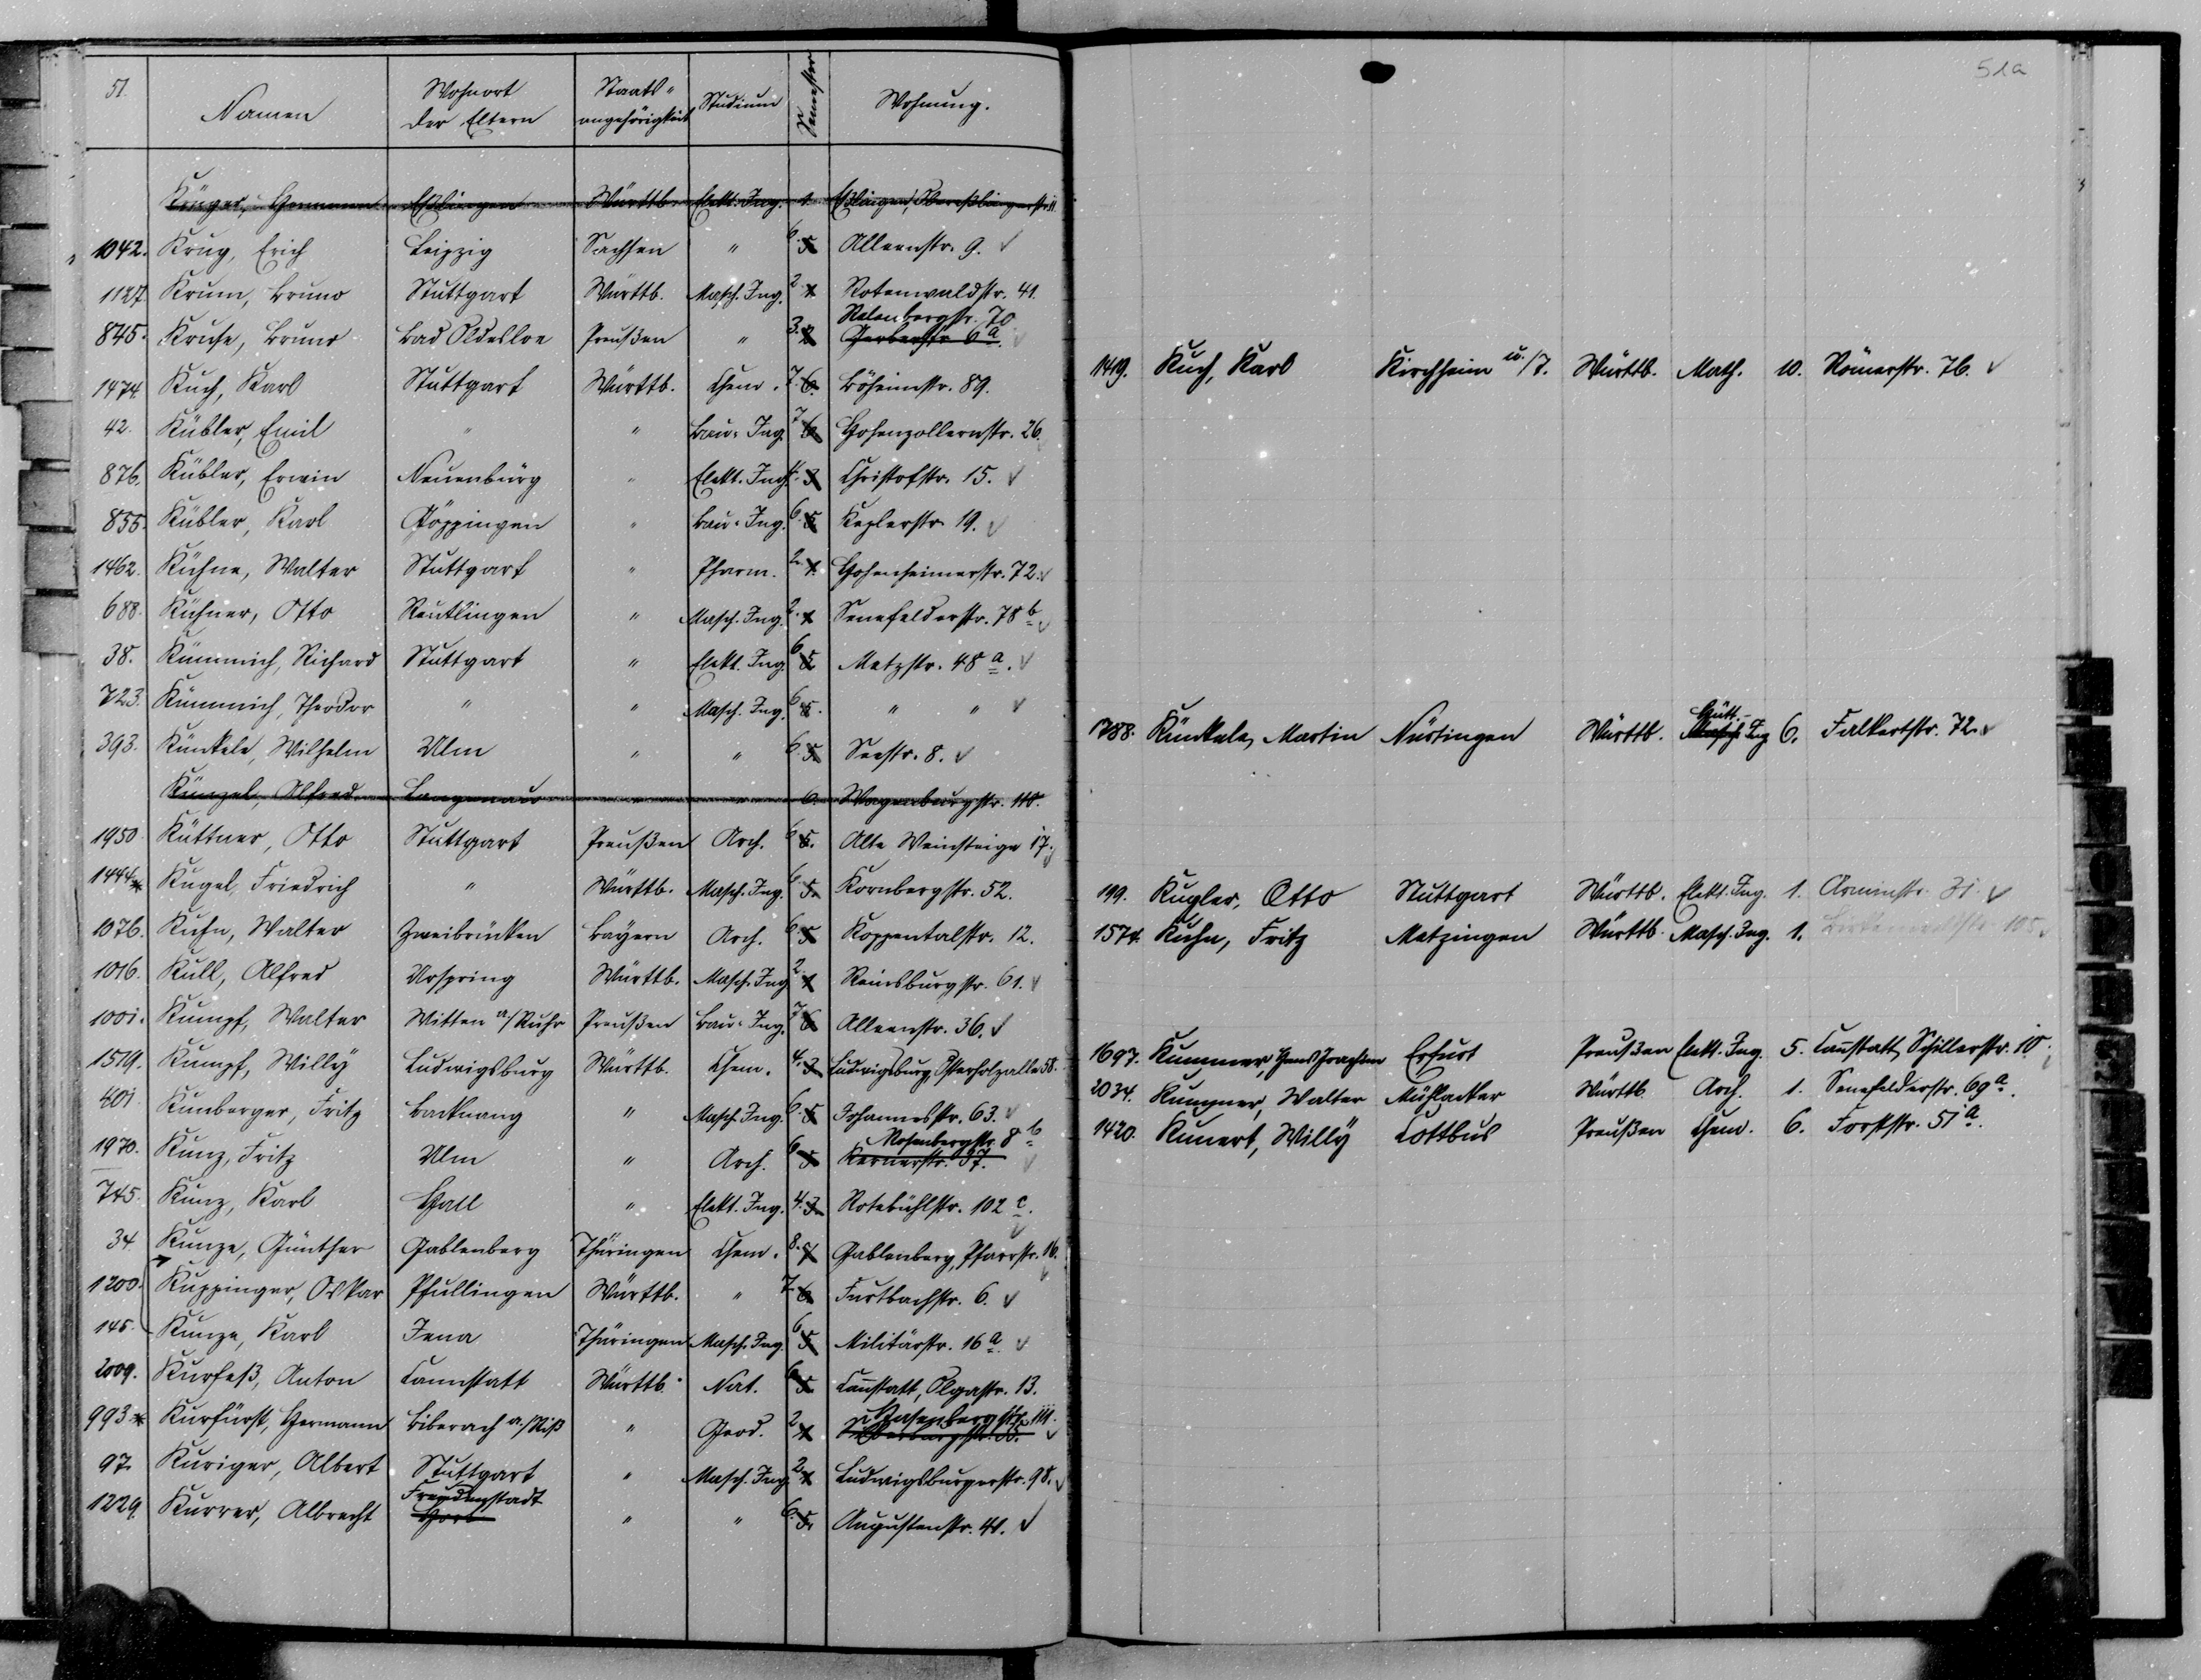 51.
Namen Wohnort der Eltern Staats-angehörigkeit Studium Semester Wohnung.
Krüger, Hermann Eßlingen Württb. Elekt. Ing. 1. Eßlingen, Obereßlingerstr. 11
1042. Krug, Erich Leipzig Sachsen " 6. 5. Alleenstr. 9. ✓
1127. Krum, Bruno Stuttgart Württb. Masch. Ing. 2. 1. Rotenwaldstr. 41.
845. Kruse, Bruno Bad Oldesloe Preußen " 3. 2. Gerberstr. 6a. Relenbergstr. 70
1474. Kuch, Karl Stuttgart Württb. Chem. 7. 6. Böheimstr. 89.
42. Kübler, Emil " " Bau-Ing. 7. 6. Hohenzollernstr. 26.
876. Kübler, Erwin Neuenbürg " Elekt. Ing. 4. 3. Christofstr. 15. ✓
855. Kübler, Karl Göppingen " Bau-Ing. 6. 5. Keplerstr. 19. ✓
1462. Kühne, Walter Stuttgart " Pharm. 2. 1. Hohenheimerstr. 72. ✓
688. Kühner, Otto Reutlingen " Masch. Ing. 2. 1. Senefelderstr. 78b ✓
38. Kümmich, Richard Stuttgart " Elekt. Ing. 6. 5. Metzstr. 48a. ✓
723. Kümmich, Theodor " " Masch. Ing. 6. 5. " " ✓
393. Künkele, Wilhelm Ulm " " 6. 5. Seestr. 8. ✓
Künzel, Alfred Langenau " " 6. Wagenburgstr. 110.
1950. Küttner, Otto Stuttgart Preußen Arch. 6. 5. Alte Weinsteige 17. ✓
1444.* Kugel, Friedrich " Württb. Masch. Ing. 6. 5. Kornbergstr. 52.
1076. Kuhn, Walter Zweibrücken Bayern Arch. 6. 5. Koppentalstr. 12.
1016. Kull, Alfred Urspring Württb. Masch. Ing. 2. 1. Reinsburgstr. 61. ✓
1001. Kumpf, Walter Witten a./Ruhr Preußen Bau-Ing. 7. 6. Alleenstr. 36. ✓
1519. Kumpf, Willy Ludwigsburg Württb. Chem. 4. 3. Ludwigsburg, Osterholzallee 58.
401. Kunberger, Fritz Backnang " Masch. Ing. 6. 5. Johannesstr. 63. ✓
1970. Kunz, Fritz Ulm " Arch. 6. 5. Kernerstr. 37. Rosenbergstr. 8b ✓
745. Kunz, Karl Hall " Elekt. Ing. 4. 3. Rotebühlstr. 102c. ✓
34. Kunze, Günther Gablenberg Thüringen Chem. 8. 7. Gablenberg, Pfarrstr. 16. ✓
1200. Kuppinger, Oskar Pfullingen Württb. " 7. 6. Furtbachstr. 6. ✓
145. Kunze, Karl Jena Thüringen Masch. Ing. 6. 5. Militärstr. 16a. ✓
2009. Kurfeß, Anton Cannstatt Württb. Nat. 6. 5. Canstatt, Olgastr. 13.
993.* Kurfürst, Hermann Biberach a./Riß " Geod. 2. 1. Rosenbergstr. 111. ✓
97. Kuriger, Albert Stuttgart " Masch. Ing. 2. 1. Ludwigsburgerstr. 98. ✓
1229. Kurrer, Albrecht Freudenstadt " " 6. 5. Augustenstr. 41. ✓
51a
1419. Kuch, Karl Kirchheim u./T. Württb. Math. 10. Römerstr. 76. ✓
1788. Künkele, Martin Nürtingen Württb. Hütt.- Masch. Ing 6. Falkertstr. 72. ✓
199. Kugler, Otto Stuttgart Württb. Elekt. Ing. 1. Arminstr. 31. ✓
1574. Kuhn, Fritz Metzingen Württb. Masch. Ing. 1. Birkenwaldstr. 105.
1697. Kummer, Hans Joachim Erfurt Preußen Elekt. Ing. 5. Canstatt, Schillerstr. 10.
2034. Kummer, Walter Mühlacker Württb. Arch. 1. Senefelderstr. 69a.
1420. Kunert, Willy Cottbus Preußen Chem. 6. Forststr. 51a.